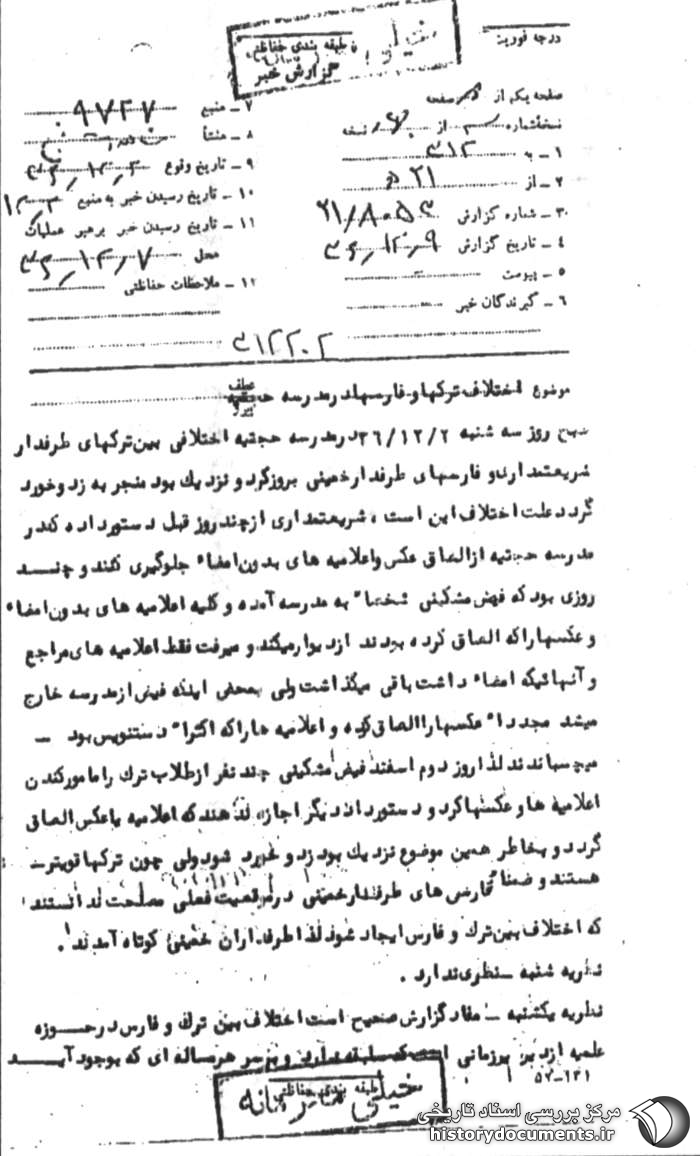 درجه فوریت
خیلی محرمانه
طبقه بندی حفاظتی
گزارش خبر
صفحه یکم از صفحه
نسخه شماره از نسخه
۱ - به ۳۱۲
۲ - از ۲۱ ه
۳ - شماره گزارش ۲۱/۸۰۵۳
۴ - تاریخ گزارش ۳۶٫۱۲٫۹
۵ - پیوست
۶ - گیرندگان خبر
۷ - منبع ۹۷۲۷
۸ - منشأ
۹ - تاریخ وقوع ۳۶٫۱۲٫۲
۱۰ - تاریخ رسیدن خبر به منبع
۱۱ - تاریخ رسیدن خبر برهبر عملیات
محل ۳۶٫۱۲٫۷
۱۲ - ملاحظات حفاظتی
۳۱۲۲۰۲
موضوع اختلاف ترکها و فارسها در مدرسه حجتیه
عطف
صبح روز سه شنبه ۳۶/۱۲/۲ در مدرسه حجتیه اختلافی بین ترکهای طرفدار
شریعتمداری و فارسهای طرفدار خمینی بروز کرد و نزدیک بود منجر به زد و خورد
گردد علت اختلاف این است ، شریعتمداری از چند روز قبل دستور داده که در
مدرسه حجتیه از الصاق عکس و اعلامیه های بدون امضاء جلوگیری کنند و چنـــد
روزی بود که فیض مشکینی شخصاً به مدرسه آمده و کلیه اعلامیه های بدون امضاء
و عکسها را که الصاق کرده بودند از دیوار میکند و میرفت فقط اعلامیه های مراجع
و آنهائیکه امضاء داشت باقی میگذاشت ولی بمحض اینکه فیض از مدرسه خارج
میشد مجدداً عکسها را الصاق کرده و اعلامیه ها را که اکثراً دستنویس بود -
میچسباندند لذا روز دوم اسفند فیض مشکینی چند نفر از طلاب ترک را مامور کندن
اعلامیه ها و عکسها کرد و دستور داد دیگر اجازه ندهند که اعلامیه یا عکس الصاق
گردد و بخاطر همین موضوع نزدیک بود زد و خورد شود ولی چون ترکها قویتر -
هستند و ضمناً فارس های طرفدار خمینی در موقعیت فعلی مصلحت ندانستند
که اختلاف بین ترک و فارس ایجاد شود لذا طرفداران خمینی کوتاه آمدند .
نظریه شنبه - نظری ندارد .
نظریه یکشنبه - مفاد گزارش صحیح است اختلاف بین ترک و فارس در حـــوزه
علمیه از دیر زمانی است که سابقه دارد و بر سر هر مساله ای که بوجود آیـــد
۵۷-۱۳۱
طبقه بندی حفاظتی
خیلی محرمانه
مرکز بررسی اسناد تاریخی
historydocuments.ir